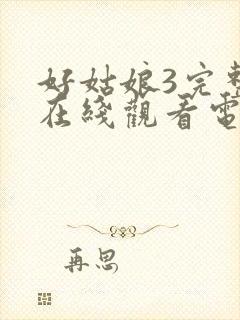 好姑娘3完整
在线觀看電
再思